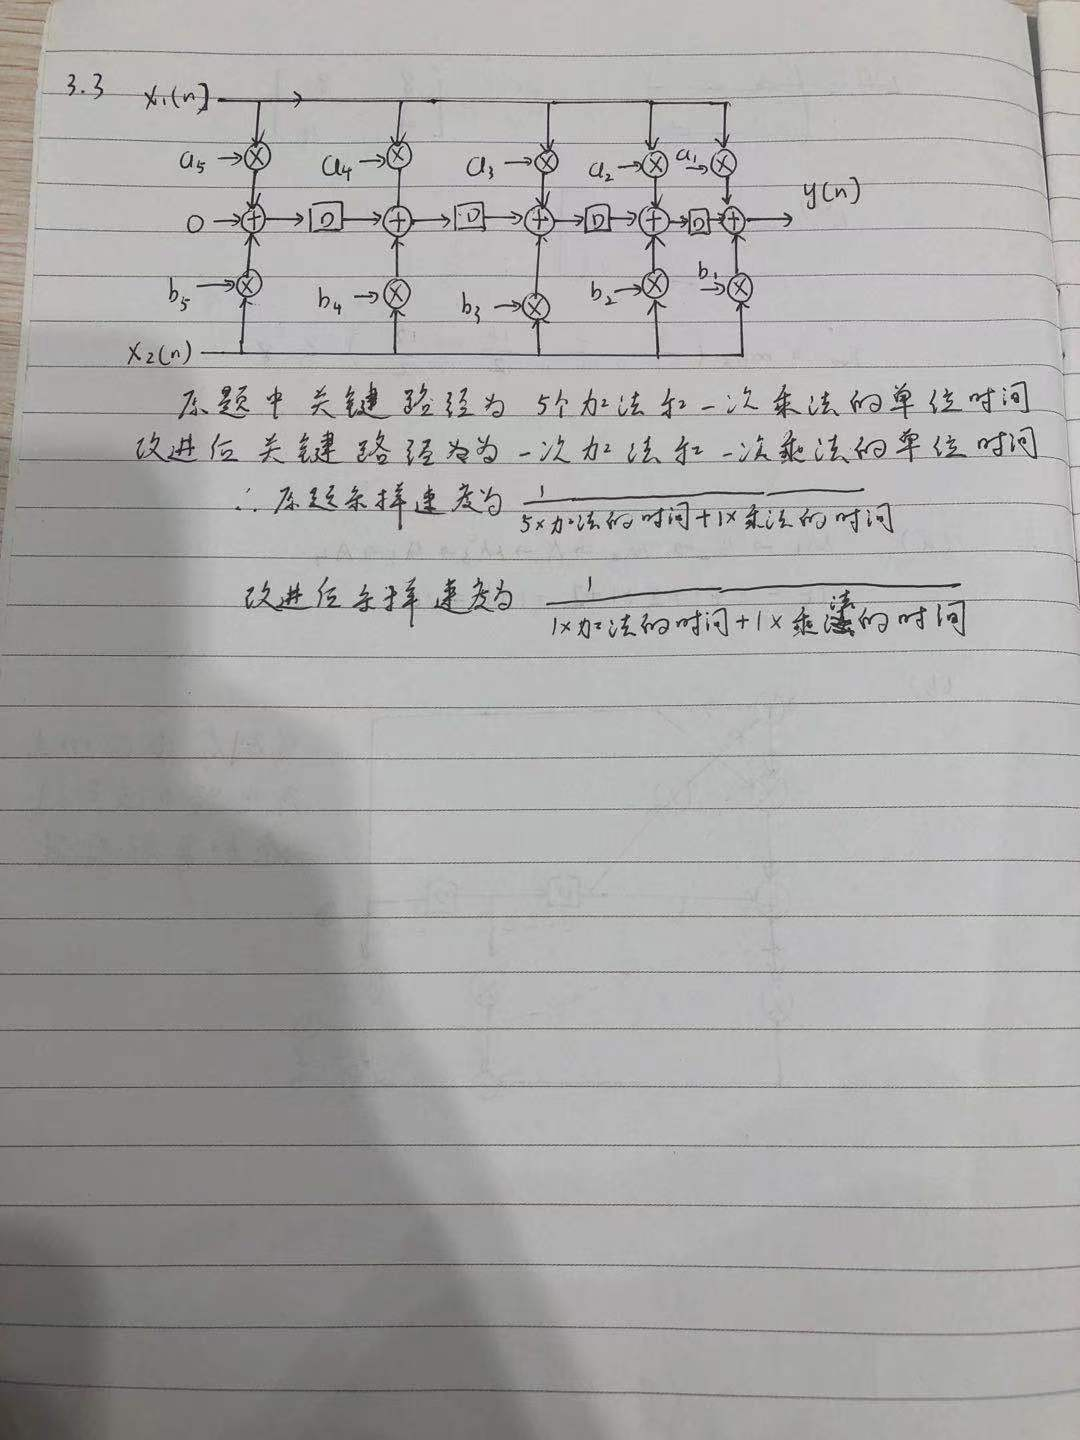 3.3 x₁(n)
a₅ a₄ a₃ a₂ a₁
0 D D D D y(n)
b₅ b₄ b₃ b₂ b₁
x₂(n)
原题中关键路径为5个加法和一次乘法的单位时间
改进后关键路径为为一次加法和一次乘法的单位时间
∴原题采样速度为 1/(5×加法的时间+1×乘法的时间)
改进后采样速度为 1/(1×加法的时间+1×乘法的时间)